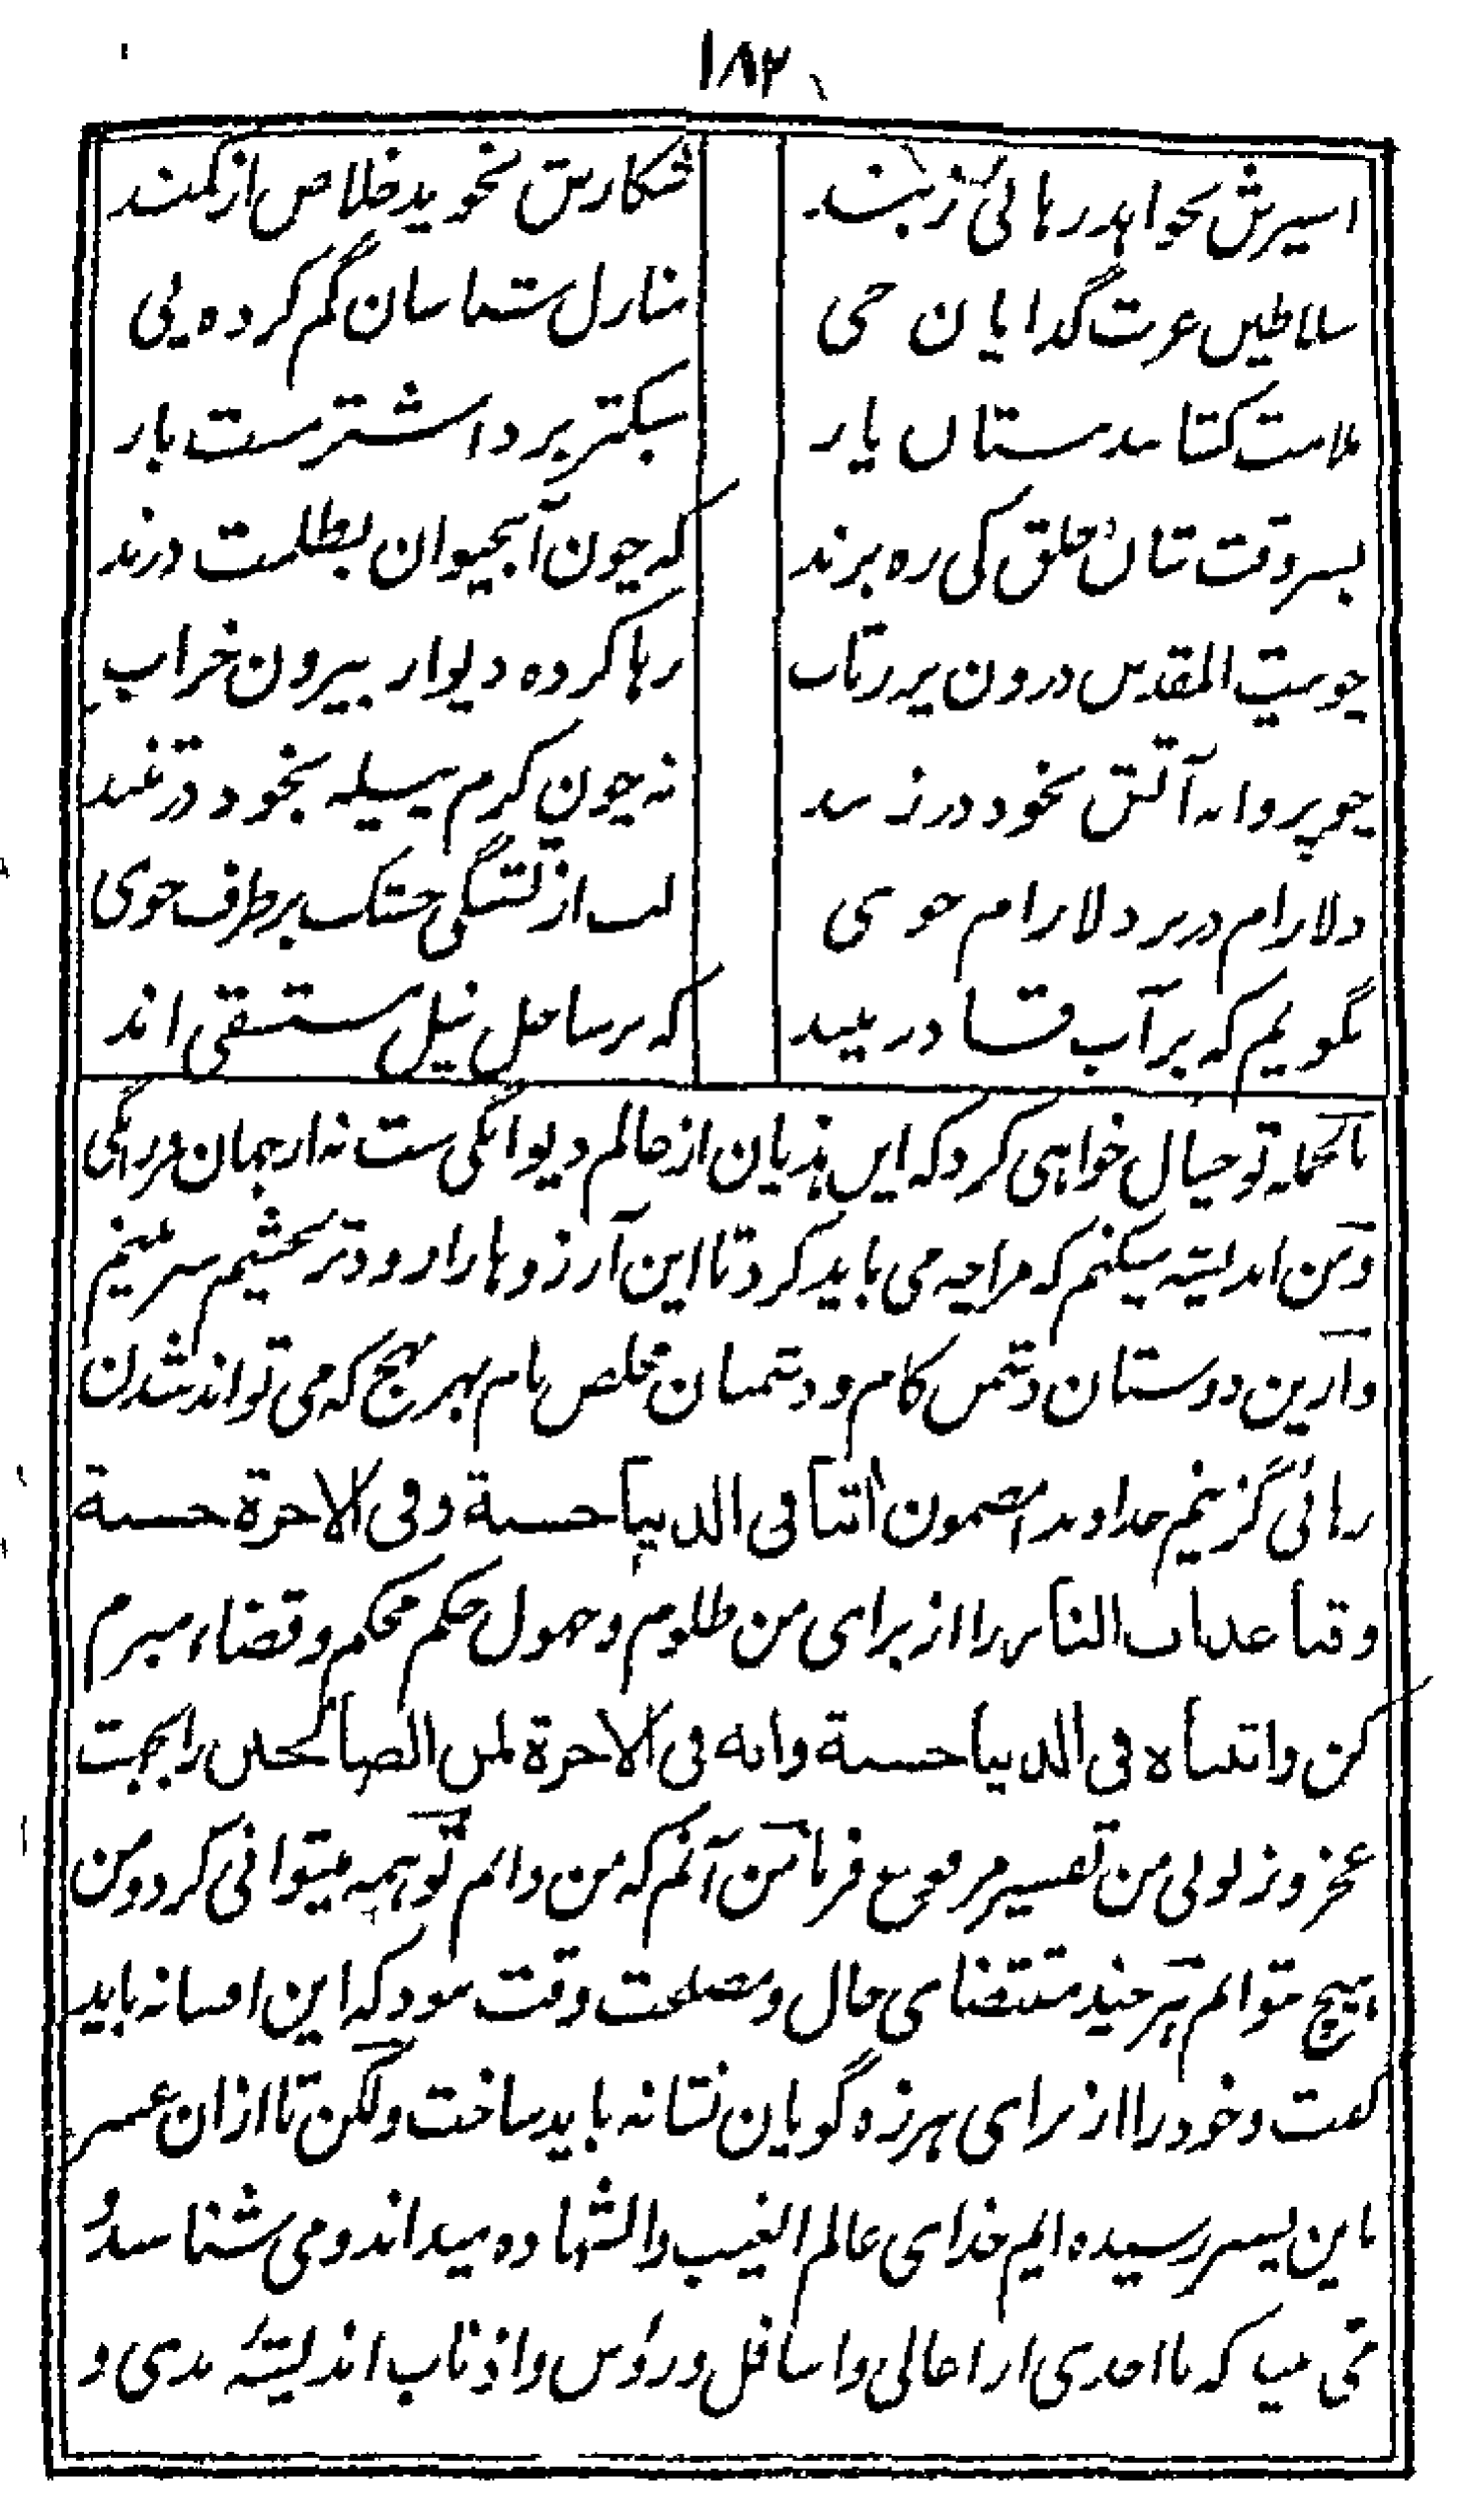 ۱۸۲
اسیرش نخواهد رهائی ز بند    شکارش نجوید خلاص از کمند
سلاطین عزت گدایان حی    منازل شناسان گم کرده پی
ملامت کشانند مستان یار    سبکتر برد اشتر مست بار
بسر وقت شان خلق کی ره برند    که چون آبحیوان بظلمت درند
چو بیت المقدس درون پر ز تاب    رها کرده دیوار بیرون خراب
چو پروانه آتش بخود در زنند    نه چون کرم پیله بخود در تنند
دلارام در بر دلارام جوی    لب از تشنگی خشک بر طرف جوی
نگویم که بر آب قادر نیند    که بر ساحل نیل مستسقی اند
تو خیال خواهی کرد که این هذیان از عالم دیوانگی ست نه از جهان فرزانگی
و من اندیشه میکنم که مرا چه می باید کرد تا این آرزوها را زودتر بچشم سر بینم
و ازین دوستان دشمن کام و دشمنان مخلص نام بهر نهج که می تواند شدن
رهائی گزینم خداوندا مضمون آتنا فی الدنیا حسنة وفی الاخرة حسنة
وقنا عذاب النار را از برای من ظلوم و جهول حکم محکم و قضاء مبرم
کن و اتیناه فی الدنیا حسنة وانه فی الاخرة لمن الصالحین را بجهت
عجز و زبونی من تفسیر مرفوع فرما من آنم که من دانم تو همه میتوانی کرد و من
هیچ نتوانم هر چند مقتضای حال و مصلحت وقت نبود که این افسانه باید
گفت و خود را از برای هرزه گویان نشانه باید ساخت ولکن تا ازان عسر
باین یسر رسیده ایم خدای عالم الغیب والشهاده میداند و می شناسد و
می بیند که با احدی از اعالی و اسافل و رؤس و اذناب اندیشهٔ بدی و